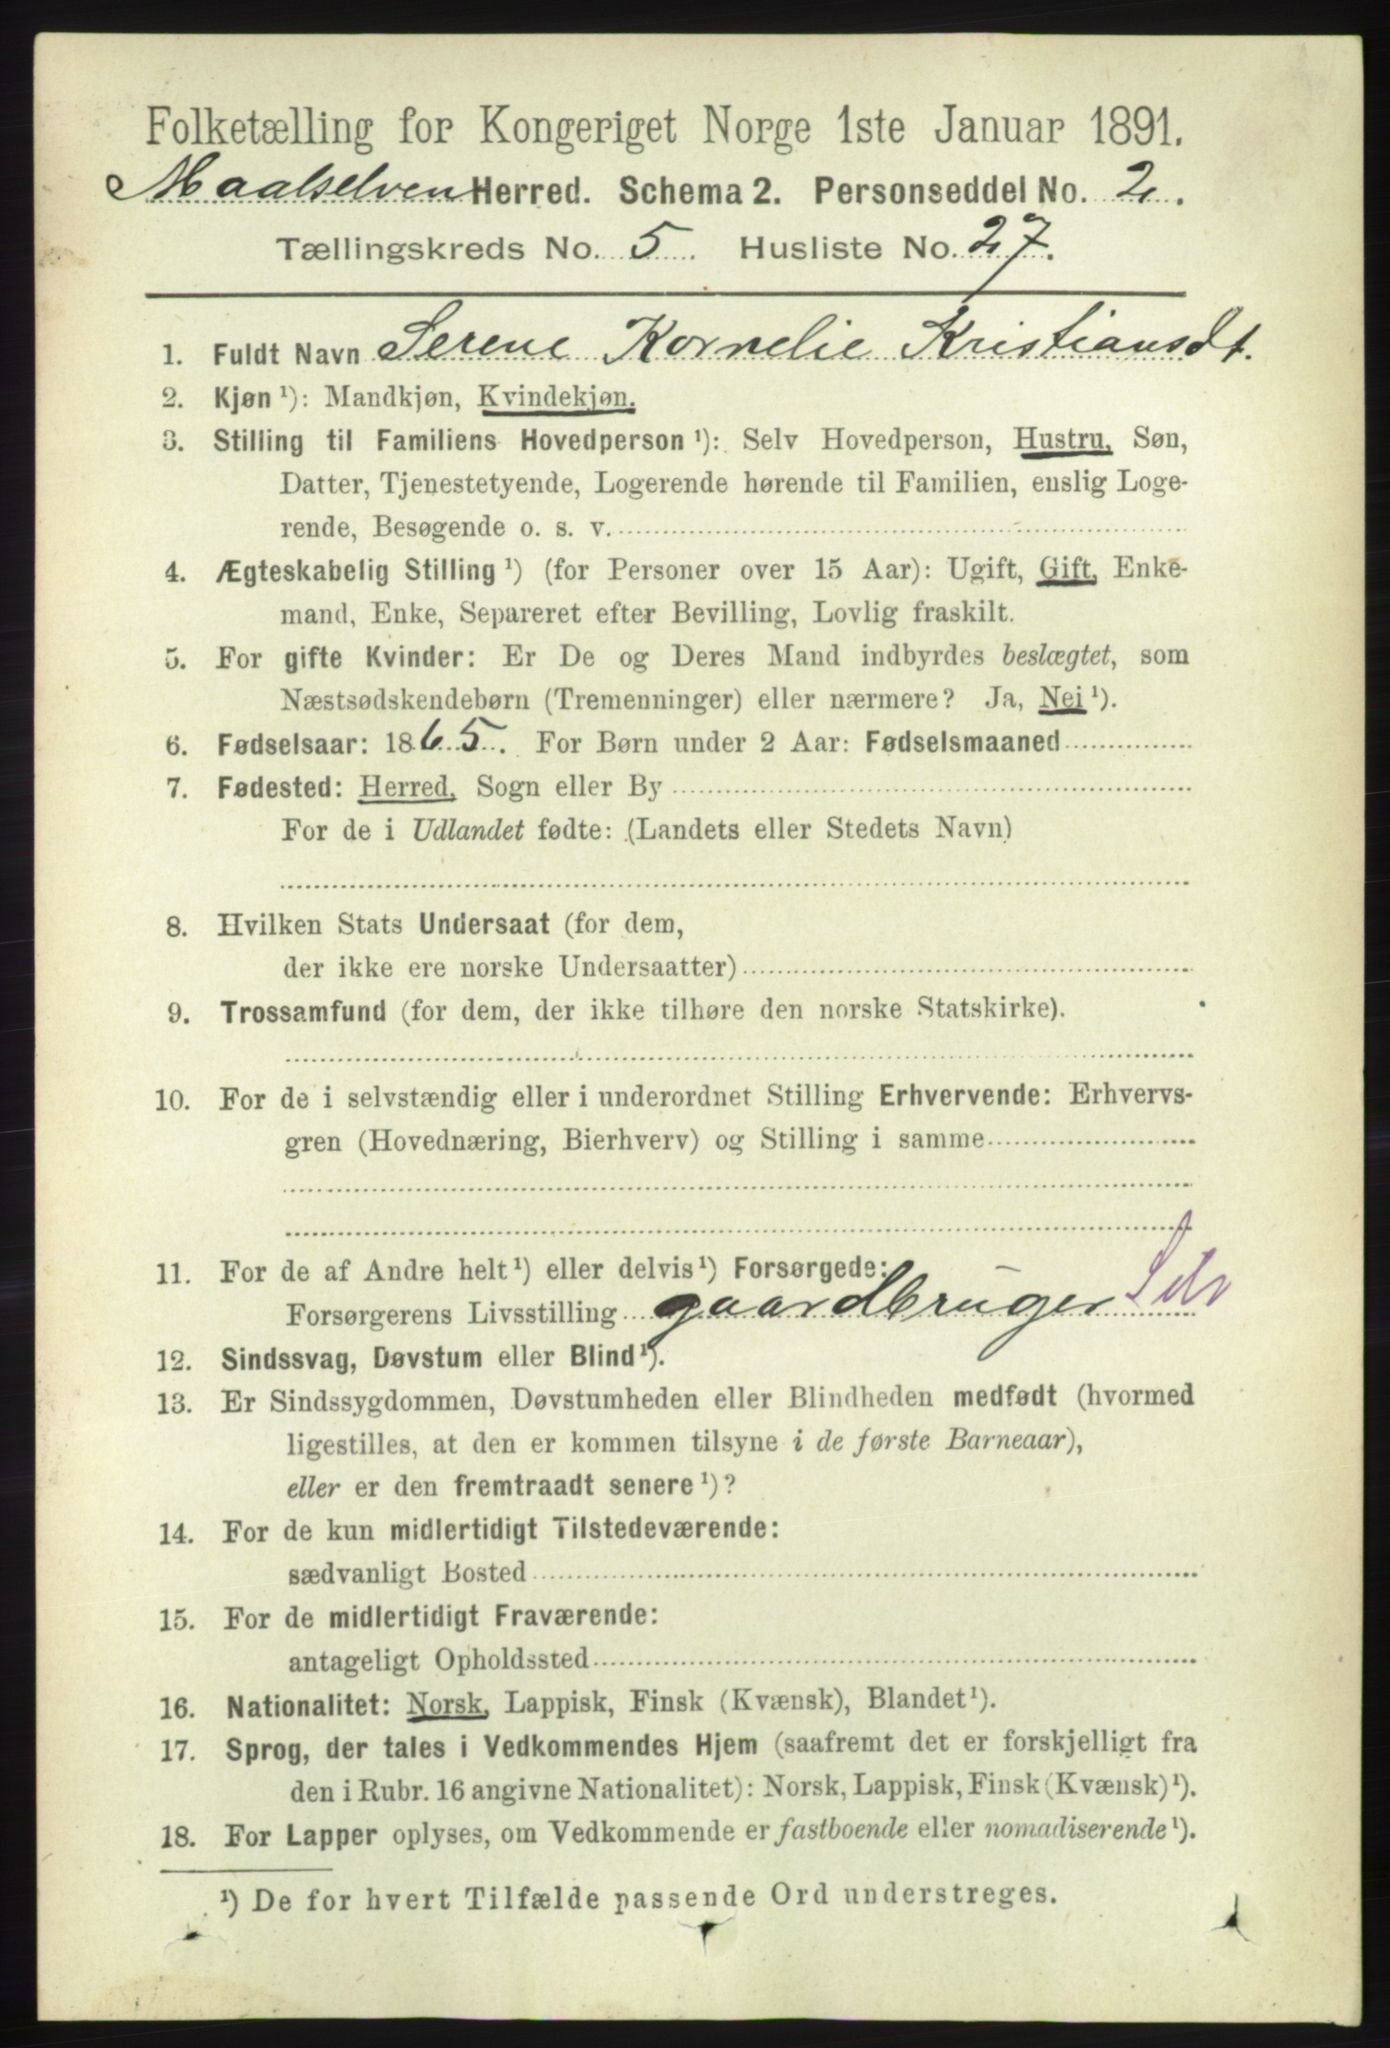 Folketælling for Kongeriget Norge 1ste Januar 1891.
Maalselven Herred. Schema 2. Personseddel No. 2.
Tællingskreds No. 5. Husliste No. 27.
1. Fuldt Navn Serene Kornelie Kristiansdt.
2. Kjøn ¹): Mandkjøn, Kvindekjøn.
3. Stilling til Familiens Hovedperson ¹): Selv Hovedperson, Hustru, Søn,
Datter, Tjenestetyende, Logerende hørende til Familien, enslig Loge-
rende, Besøgende o. s. v.
4. Ægteskabelig Stilling ¹) (for Personer over 15 Aar): Ugift, Gift, Enke-
mand, Enke, Separeret efter Bevilling, Lovlig fraskilt.
5. For gifte Kvinder: Er De og Deres Mand indbyrdes beslægtet, som
Næstsødskendebørn (Tremenninger) eller nærmere? Ja, Nei ¹).
6. Fødselsaar: 1865. For Børn under 2 Aar: Fødselsmaaned
7. Fødested: Herred, Sogn eller By
For de i Udlandet fødte: (Landets eller Stedets Navn)
8. Hvilken Stats Undersaat (for dem,
der ikke ere norske Undersaatter)
9. Trossamfund (for dem, der ikke tilhøre den norske Statskirke).
10. For de i selvstændig eller i underordnet Stilling Erhvervende: Erhvervs-
gren (Hovednæring, Bierhverv) og Stilling i samme
11. For de af Andre helt ¹) eller delvis ¹) Forsørgede:
Forsørgerens Livsstilling gaardbruger Selv
12. Sindssvag, Døvstum eller Blind ¹).
13. Er Sindssygdommen, Døvstumheden eller Blindheden medfødt (hvormed
ligestilles, at den er kommen tilsyne i de første Barneaar),
eller er den fremtraadt senere ¹)?
14. For de kun midlertidigt Tilstedeværende:
sædvanligt Bosted
15. For de midlertidigt Fraværende:
antageligt Opholdssted
16. Nationalitet: Norsk, Lappisk, Finsk (Kvænsk), Blandet ¹).
17. Sprog, der tales i Vedkommendes Hjem (saafremt det er forskjelligt fra
den i Rubr. 16 angivne Nationalitet): Norsk, Lappisk, Finsk (Kvænsk) ¹).
18. For Lapper oplyses, om Vedkommende er fastboende eller nomadiserende ¹).
¹) De for hvert Tilfælde passende Ord understreges.